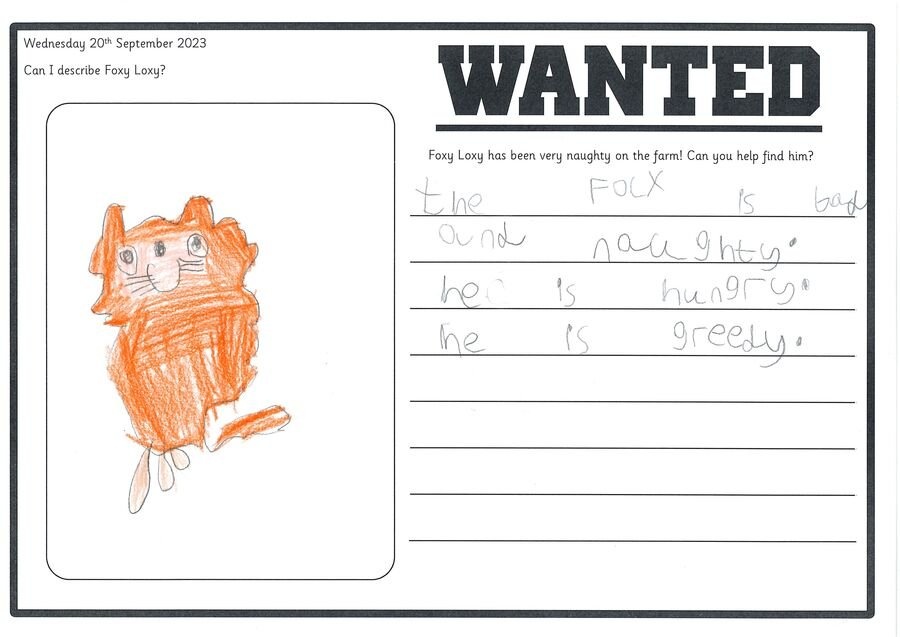 Wednesday 20th September 2023
Can I describe Foxy Loxy?
WANTED
Foxy Loxy has been very naughty on the farm! Can you help find him?
the Focx is bad
ound naughty.
he is hungry.
he is greedy.